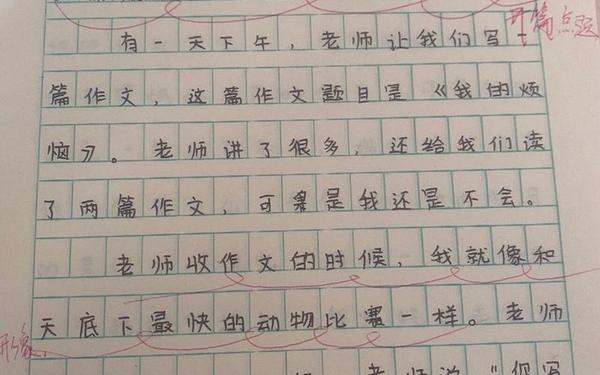 开篇点题
有一天下午，老师让我们写一
篇作文，这篇作文题目是《我的烦
恼》。老师讲了很多，还给我们读
了两篇作文，可是我还是不会。
老师收作文的时候，我就像和
天底下最快的动物比赛一样。老师
形象
老师说："你写